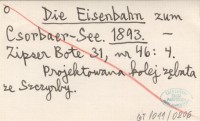 o Die Eisenbahn zum
Csorbaer-See. 1893. –
Zipser Bote 31, nr 46: 4.
Projektowana kolej zębata
ze Szczyrby.
bT/1099/0806